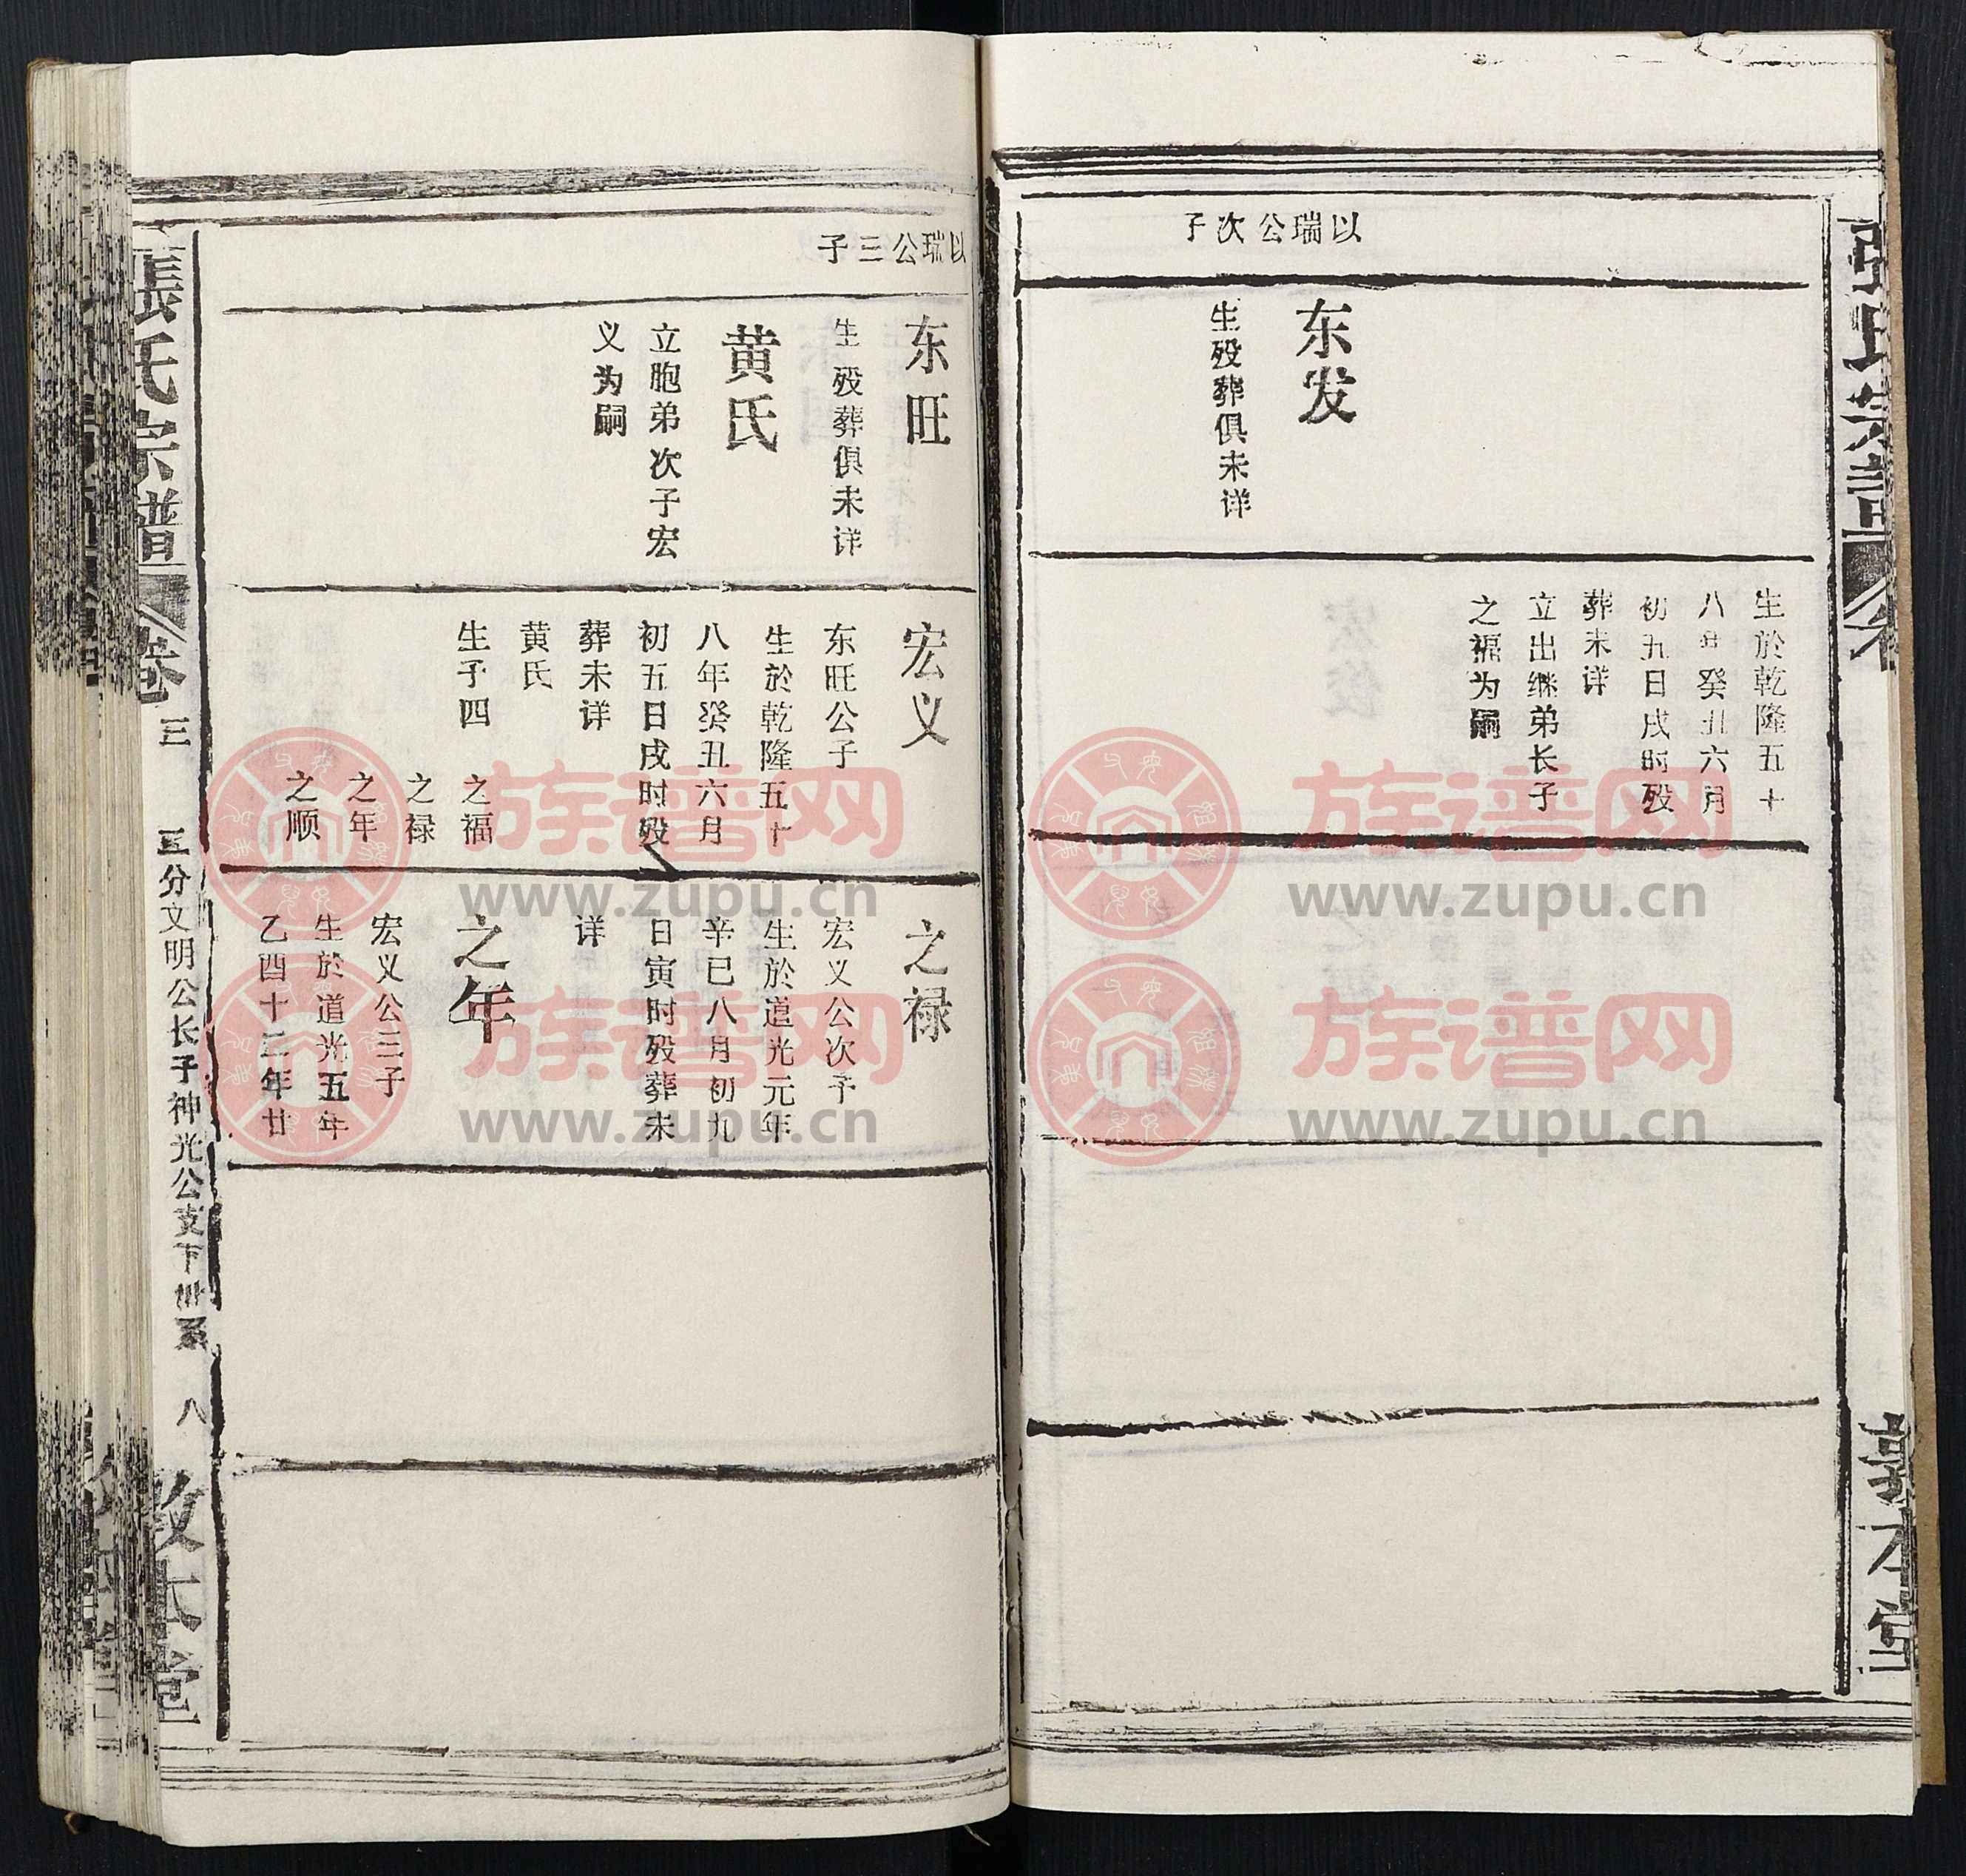 以瑞公次子
东发
生殁葬俱未详
生於乾隆五十
八年癸丑六月
初五日戌时殁
葬未详
立出继弟长子
之福为嗣
以瑞公三子
东旺
生殁葬俱未详
黄氏
立胞弟次子宏
义为嗣
宏义
东旺公子
生於乾隆五十
八年癸丑六月
初五日戌时殁
葬未详
黄氏
生子四 之福
之禄
之年
之顺
之禄
宏义公次子
生於道光元年
辛巳八月初九
日寅时殁葬未
详
之年
宏义公三子
生於道光五年
乙酉十二年廿
張氏宗譜 卷三 三分文明公长子神光公支下世系 八 敦本堂
族谱网
www.zupu.cn
族谱网
www.zupu.cn
族谱网
www.zupu.cn
族谱网
www.zupu.cn